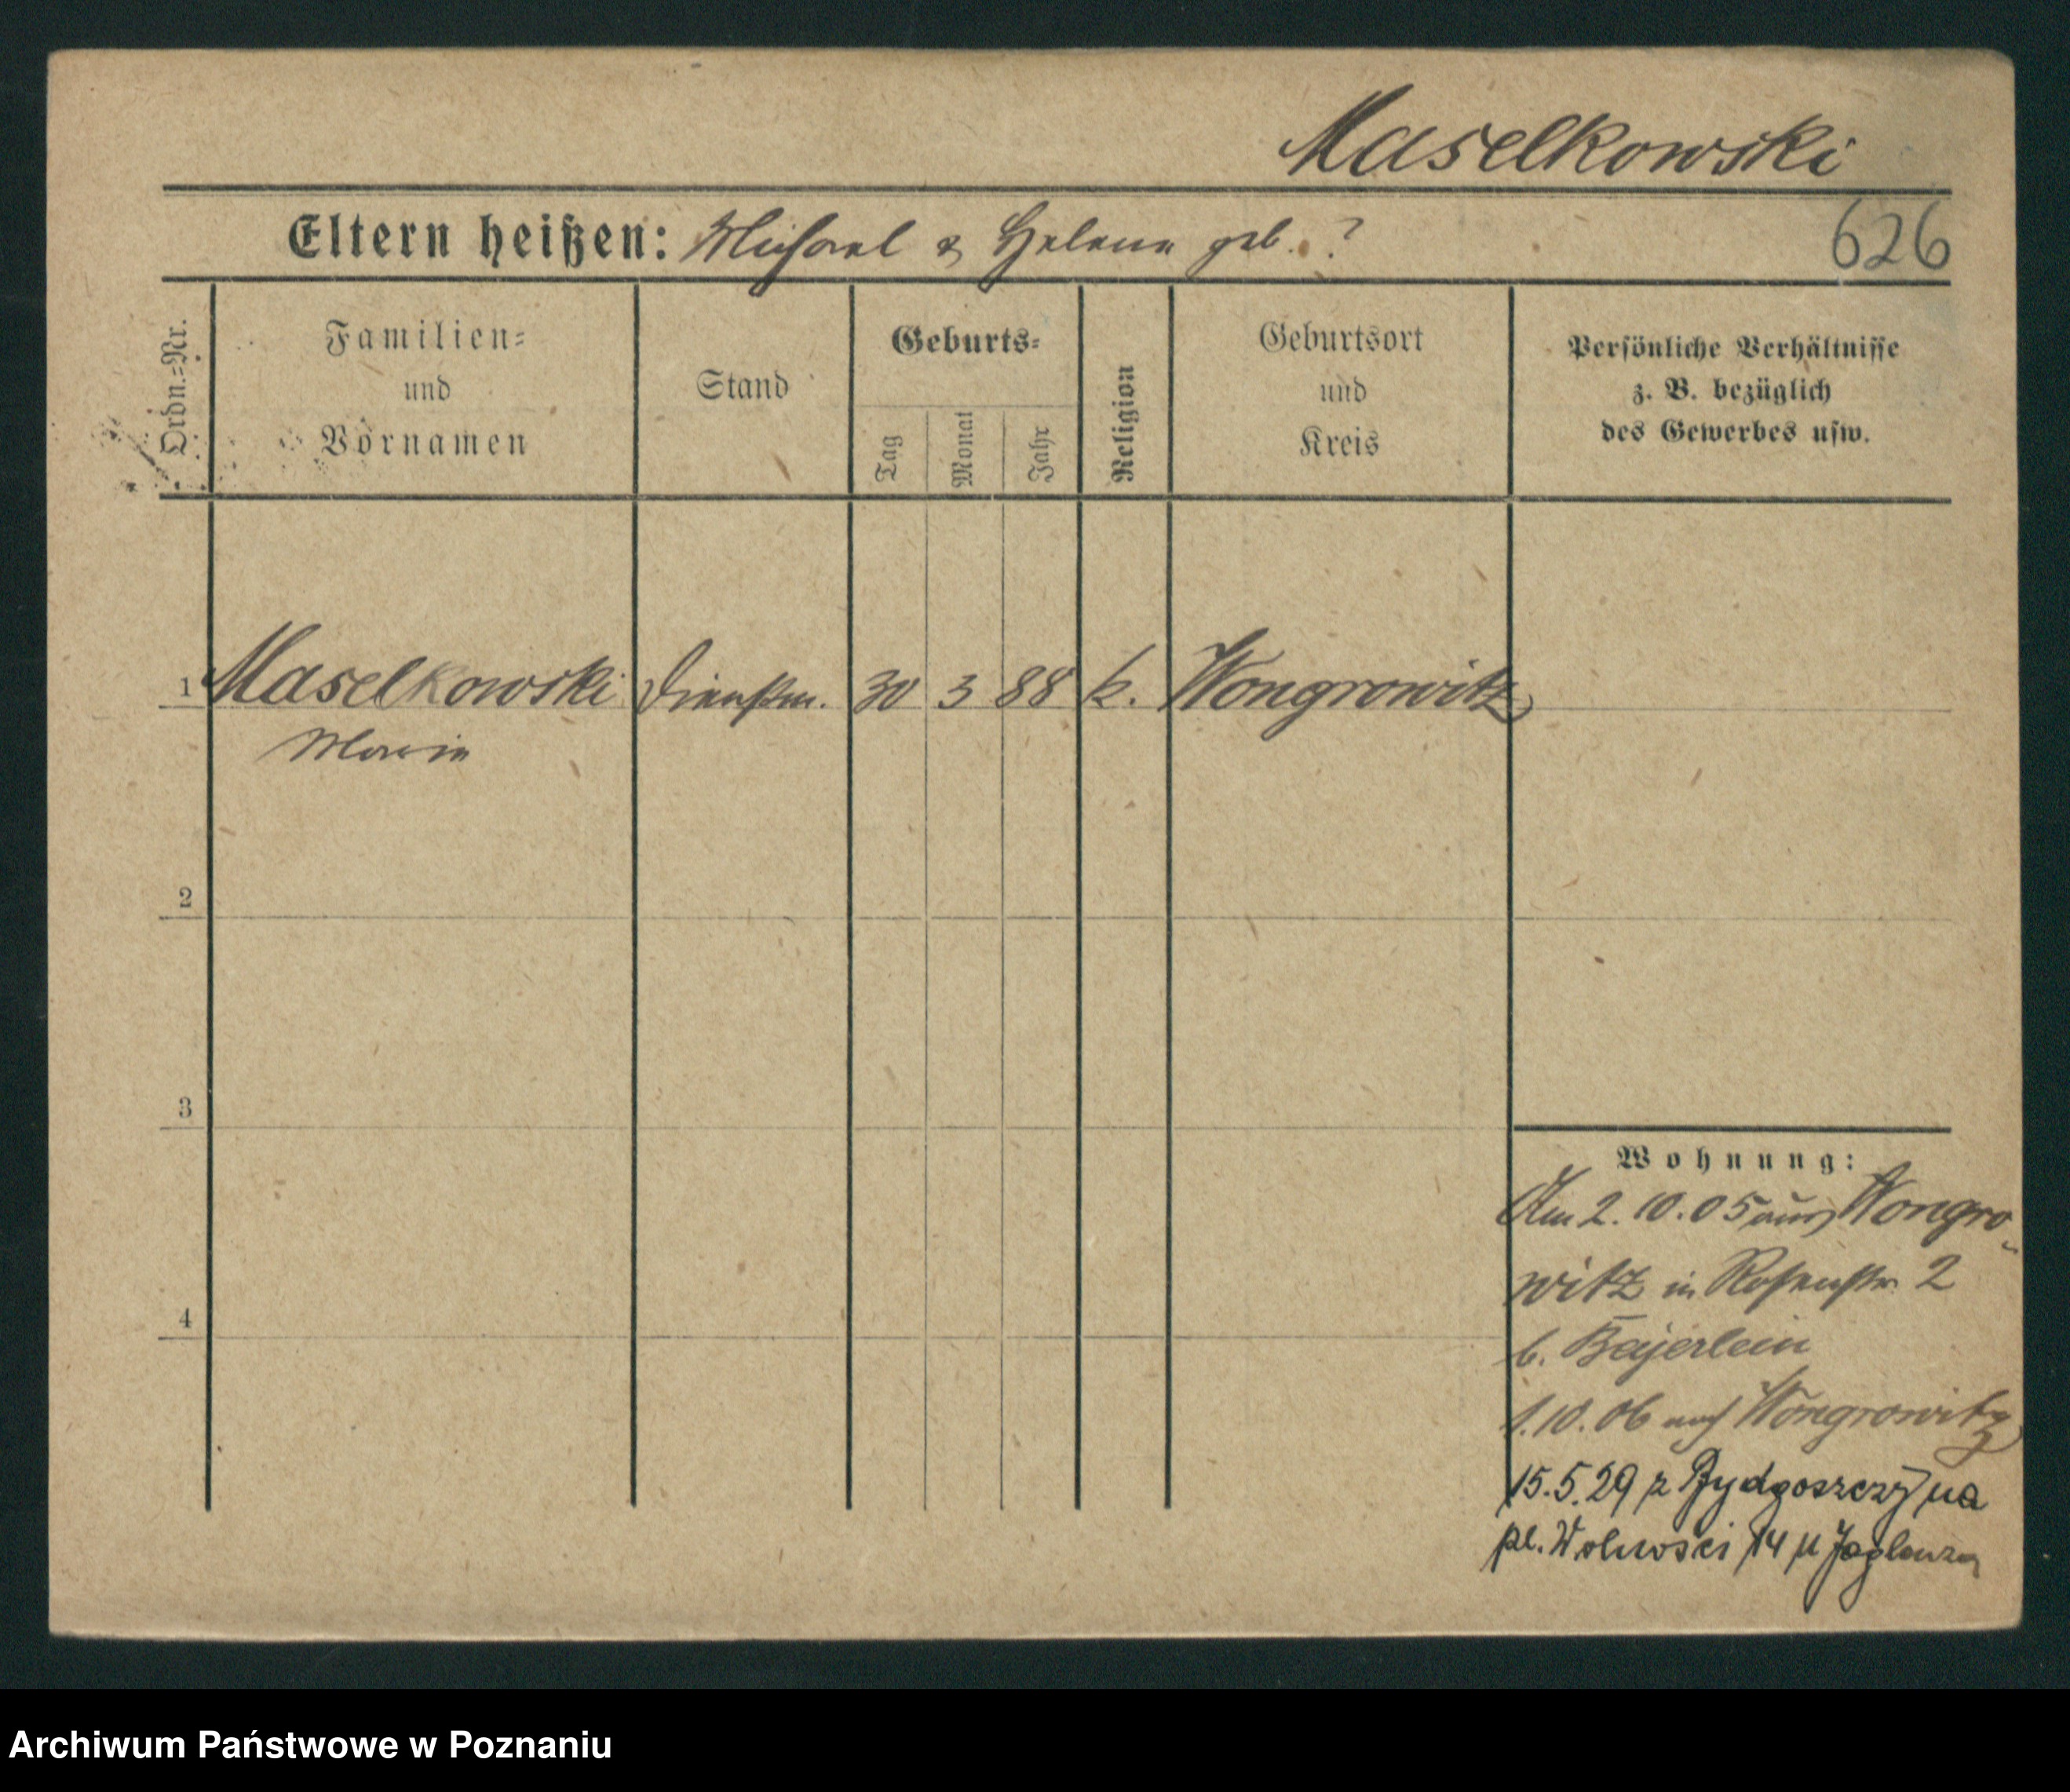 Maselkowski
Eltern heißen: Michael & Helene geb. ?
626
Ordn.-Nr.
Familien-
und
Vornamen
Stand
Geburts-
Tag
Monat
Jahr
Religion
Geburtsort
und
Kreis
Persönliche Verhältnisse
z. B. bezüglich
des Gewerbes usw.
1 Maselkowski Dienstm. 30 3 88 k. Wongrowitz
2
3
4
Wohnung:
Am 2. 10. 05 aus Wongro-
witz in Rosenstr. 2
b. Beyerlein
1. 10. 06 nach Wongrowitz
15. 5. 29 z Bydgoszczy na
pl. Wolności 14 u
Archiwum Państwowe w Poznaniu